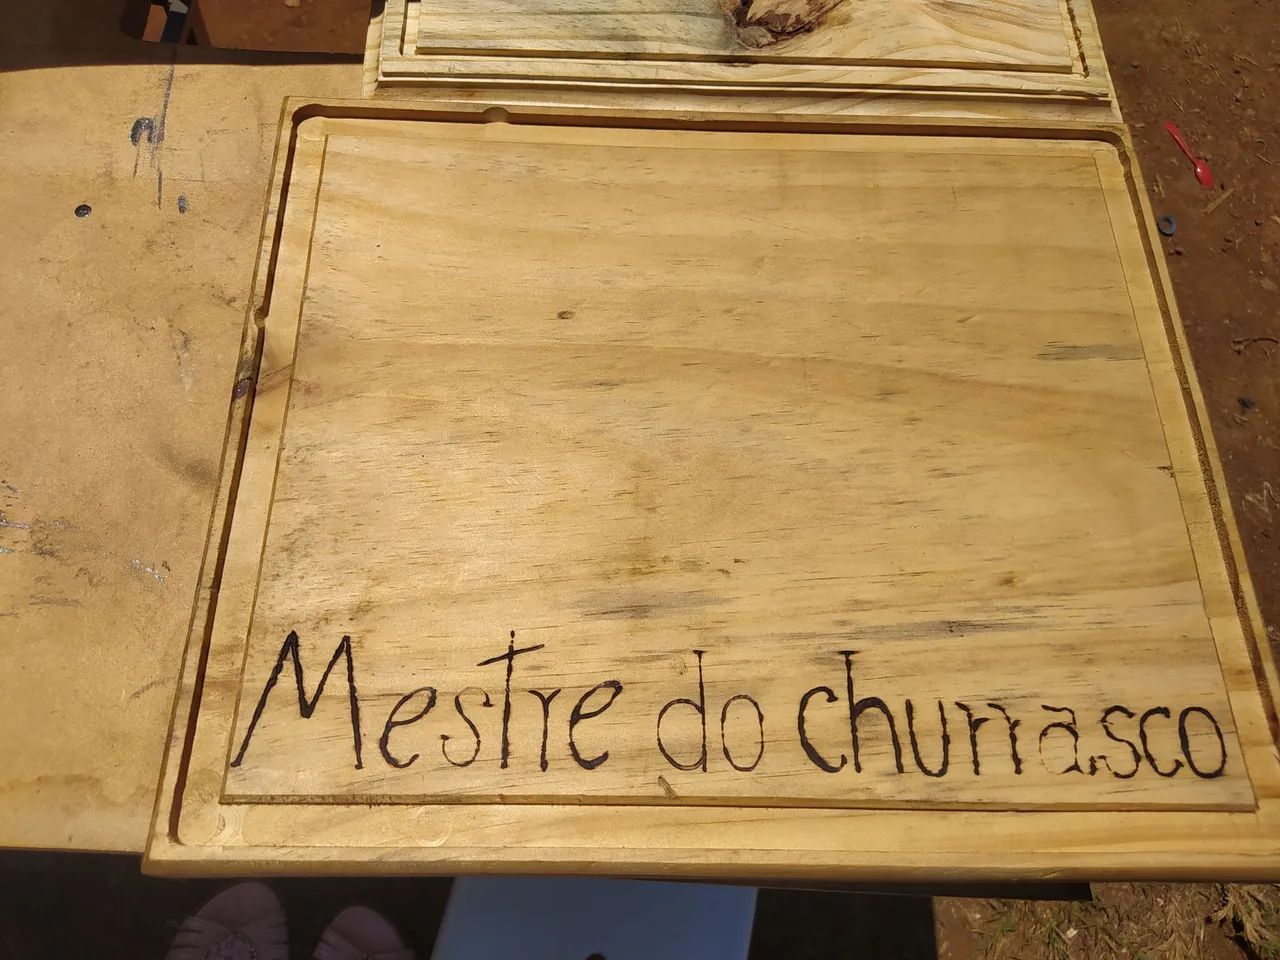 Mestre do churrasco